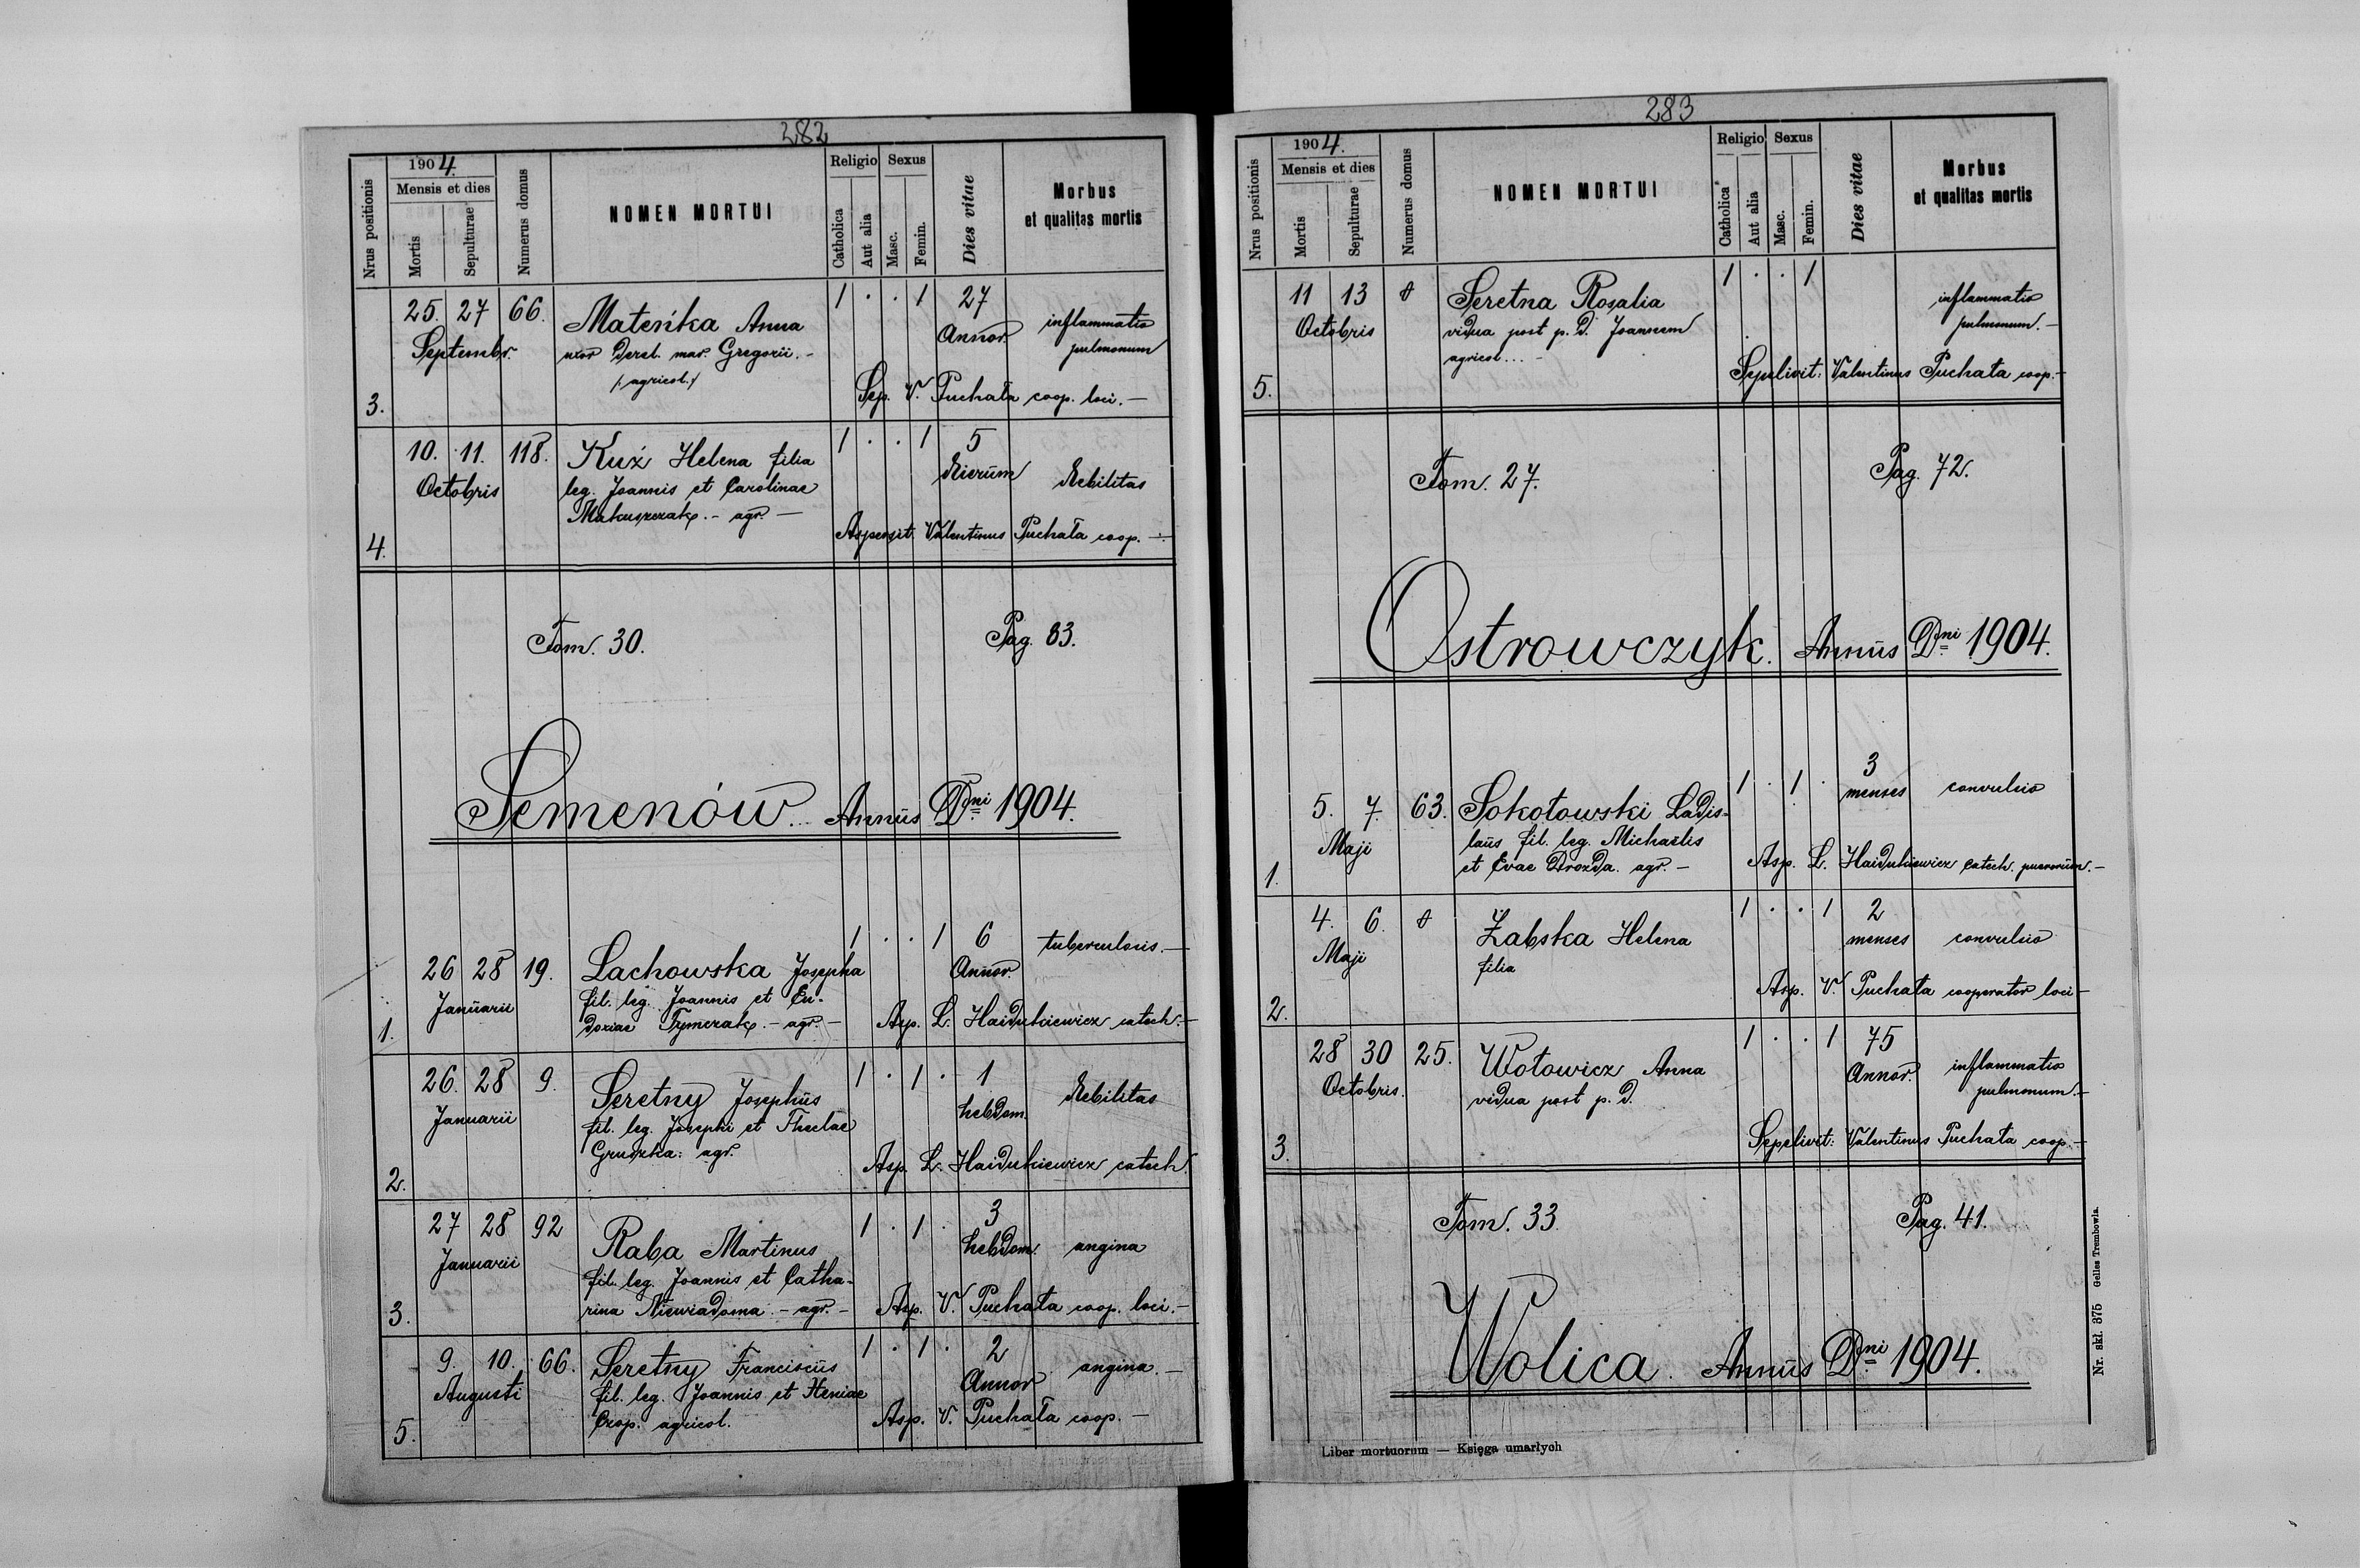 282
1904.
Mensis et dies
Nrus positionis
Mortis
Sepulturae
Numerus domus
NOMEN MORTUI
Religio
Sexus
Catholica
Aut alia
Masc.
Femin.
Dies vitae
Morbus
et qualitas mortis
25. 27 66. Mateńka Anna 1 . . 1 27 inflammatio
Septembr. uxor derel. mar. Gregorii. - Annor. pulmonum
/agricol./
3. Sep. V. Puchała coop. loci. —
10. 11. 118. Kuź Helena filia 1 . . 1 5
Octobris leg. Joannis et Carolinae dierum debilitas
Makuszczak. - agr. —
4. Aspersit. Valentinus Puchała coop. —
Tom. 30. Pag. 83.
Semenów. Annus Dni 1904.
26 28 19. Lachowska Josepha 1 . . 1 6 tuberculosis. —
Januarii fil. leg. Joannis et Eu- Annor.
1. doxiae Tymczak. - agr. - Asp. L. Haidukiewicz catech. -
26. 28 9. Seretny Josephus 1 . 1 . 1 debilitas
Januarii fil. leg. Josephi et Theclae hebdom.
Gruszka. agr.
2. Asp. L. Haidukiewicz catech.
27 28 92 Raba Martinus 1 . 1 . 3
Januarii fil. leg. Joannis et Catha- hebdom. angina
3. rina Niewiadoma. - agr. - Asp. V. Puchała coop. loci. -
9. 10. 66. Seretny Franciscus 1 . 1 . 2 angina. -
Augusti fil. leg. Joannis et Heniae Annor
5. Czop. agricol. Asp. V. Puchała coop. —
283
1904.
Mensis et dies
Nrus positionis
Mortis
Sepulturae
Numerus domus
NOMEN MORTUI
Religio
Sexus
Catholica
Aut alia
Masc.
Femin.
Dies vitae
Morbus
et qualitas mortis
11 13 Seretna Rosalia 1 . . 1 inflammatio
Octobris vidua post p. d. Joannem pulmonum. -
agricol... -
5. Sepelivit: Valentinus Puchała coop. -
Tom. 27. Pag. 72.
Ostrowczyk. Annus Dni 1904.
5. 7. 63. Sokołowski Ladis- 1 . 1 . 3 convulsio
Maji laus fil. leg. Michaëlis menses
1. et Evae Drozda. agr. - Asp. L. Haidukiewicz catech. puerorum. -
4. 6. Żabska Helena 1 . . 1 2
Maji filia menses convulsio
2. Asp. V. Puchała cooperator loci -
28 30 25. Wołowicz Anna 1 . . 1 75 inflammatio
Octobris. vidua post p. d. Annor. pulmonum. -
3. Sepelivit: Valentinus Puchała coop. -
Tom. 33. Pag. 41.
Wolica. Annus Dni 1904.
Liber mortuorum — Księga umarłych
Nr. skł. 375 Gelles Trembowla.